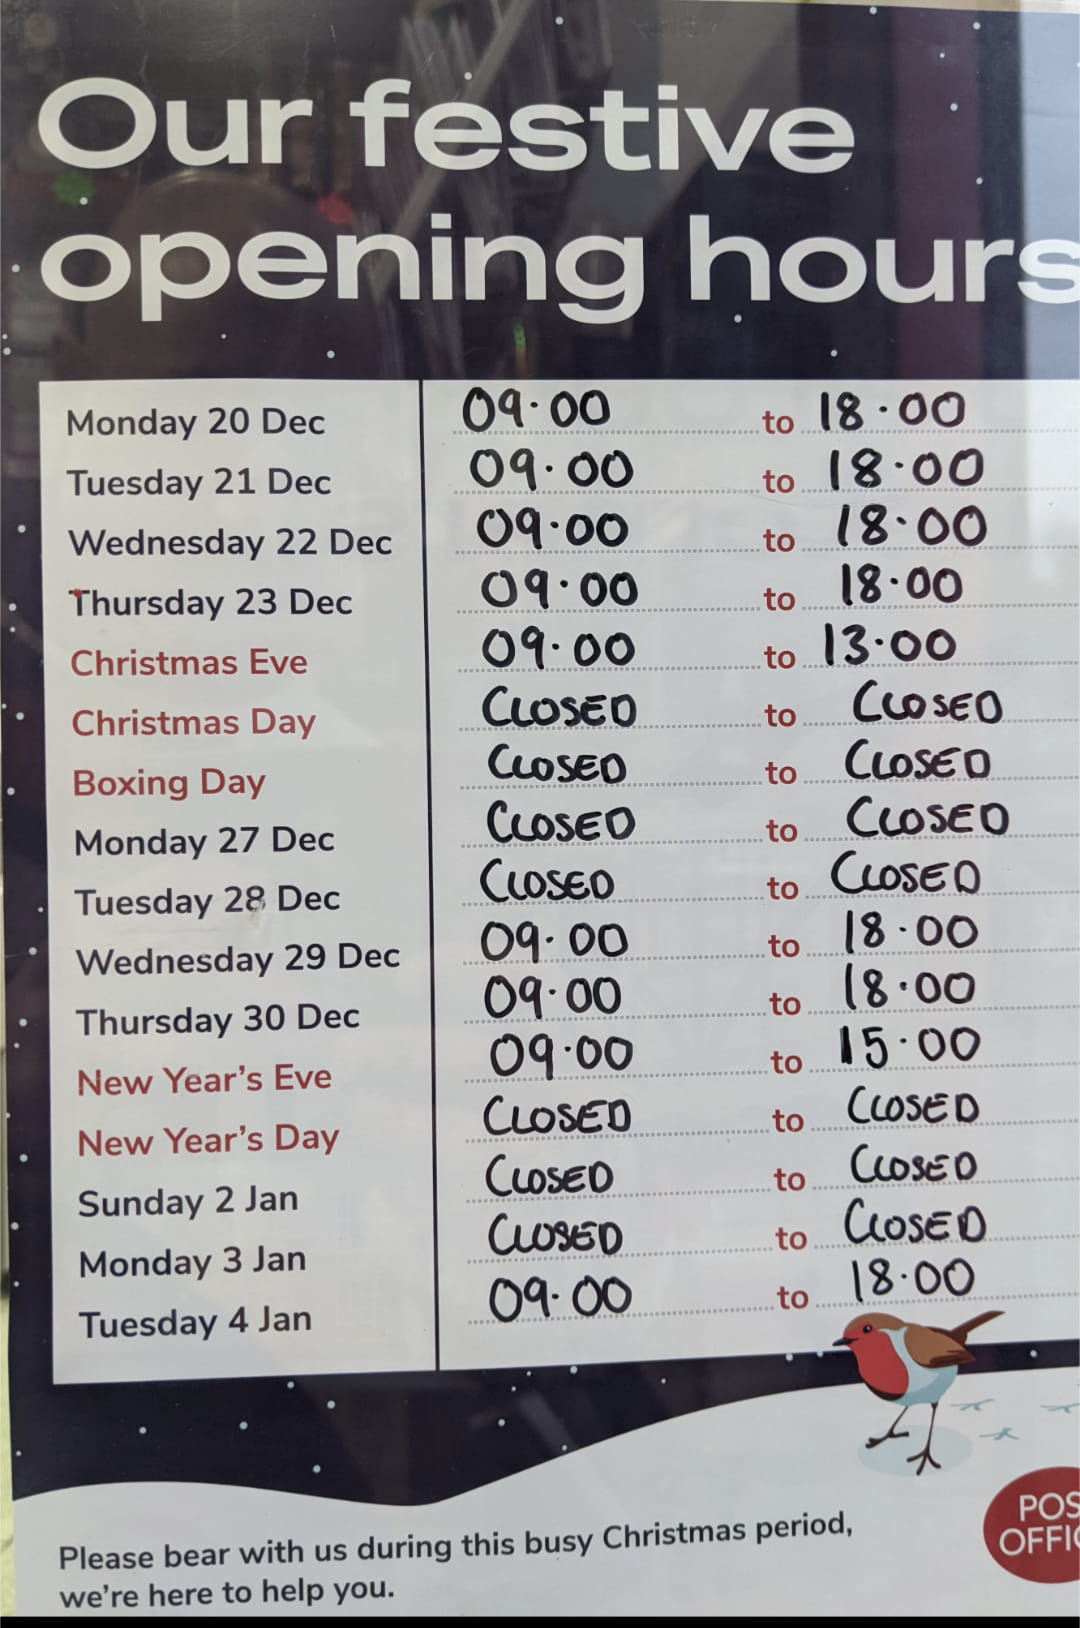 Our festive
opening hours
Monday 20 Dec 09·00 to 18·00
Tuesday 21 Dec 09·00 to 18·00
Wednesday 22 Dec 09·00 to 18·00
Thursday 23 Dec 09·00 to 18·00
Christmas Eve 09·00 to 13·00
Christmas Day CLOSED to CLOSED
Boxing Day CLOSED to CLOSED
Monday 27 Dec CLOSED to CLOSED
Tuesday 28 Dec CLOSED to CLOSED
Wednesday 29 Dec 09·00 to 18·00
Thursday 30 Dec 09·00 to 18·00
New Year's Eve 09·00 to 15·00
New Year's Day CLOSED to CLOSED
Sunday 2 Jan CLOSED to CLOSED
Monday 3 Jan CLOSED to CLOSED
Tuesday 4 Jan 09·00 to 18·00
POS
OFFIC
Please bear with us during this busy Christmas period,
we're here to help you.